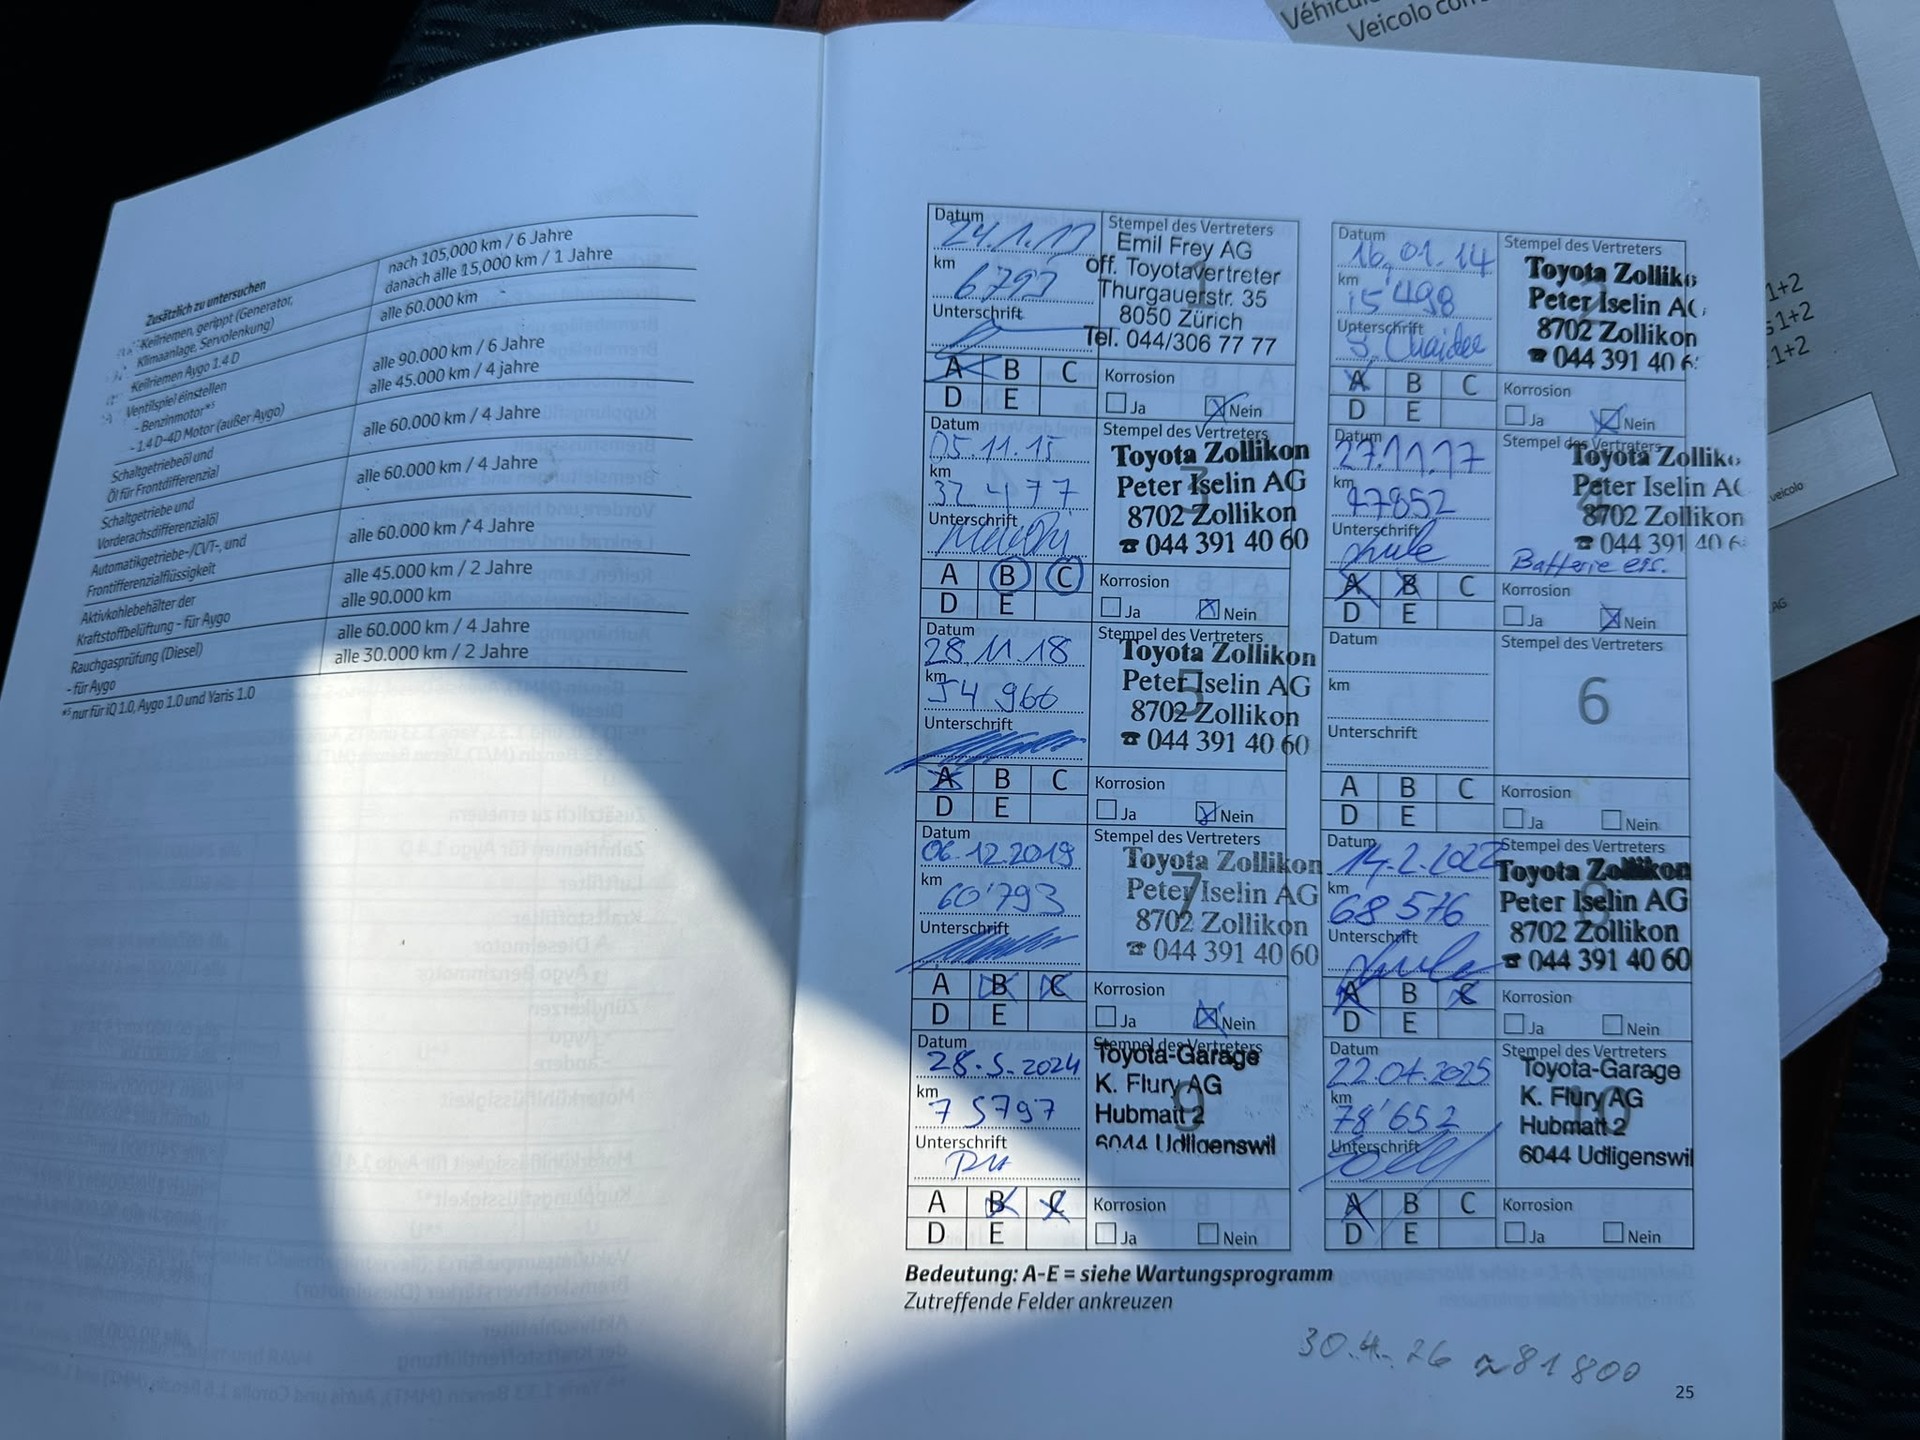 Véhicule
Veicolo con
1+2
s 1+2
1+2
veicolo
AG
Zusätzlich zu untersuchen
Keilriemen, gerippt (Generator,
Klimaanlage, Servolenkung)
nach 105,000 km / 6 Jahre
danach alle 15,000 km / 1 Jahre
Keilriemen Aygo 1.4 D
alle 60.000 km
Ventilspiel einstellen
- Benzinmotor*⁵
alle 90.000 km / 6 Jahre
- 1.4 D-4D Motor (außer Aygo)
alle 45.000 km / 4 jahre
Schaltgetriebeöl und
Öl für Frontdifferenzial
alle 60.000 km / 4 Jahre
Schaltgetriebe und
Vorderachsdifferenzialöl
alle 60.000 km / 4 Jahre
Automatikgetriebe-/CVT-, und
Frontifferenzialflüssigkeit
alle 60.000 km / 4 Jahre
Aktivkohlebehälter der
Kraftstoffbelüftung - für Aygo
alle 45.000 km / 2 Jahre
alle 90.000 km
Rauchgasprüfung (Diesel)
- für Aygo
alle 60.000 km / 4 Jahre
alle 30.000 km / 2 Jahre
*⁵ nur für iQ 1.0, Aygo 1.0 und Yaris 1.0
Datum
24.1.13
km
6793
Unterschrift
Stempel des Vertreters
1
Emil Frey AG
öff. Toyotavertreter
Thurgauerstr. 35
8050 Zürich
Tel. 044/306 77 77
A B C
D E
Korrosion
Ja Nein
Datum
16.01.14
km
15'498
Unterschrift
Stempel des Vertreters
Toyota Zolliko
Peter Iselin AG
8702 Zollikon
☎ 044 391 40 6
A B C
D E
Korrosion
Ja Nein
Datum
05.11.15
km
32477
Unterschrift
Stempel des Vertreters
3
Toyota Zollikon
Peter Iselin AG
8702 Zollikon
☎ 044 391 40 60
A B C
D E
Korrosion
Ja Nein
Datum
27.11.17
km
47852
Unterschrift
Stempel des Vertreters
Toyota Zolliko
Peter Iselin AG
8702 Zollikon
☎ 044 391 40 6
Batterie ers.
A B C
D E
Korrosion
Ja Nein
Datum
28.11.18
km
54966
Unterschrift
Stempel des Vertreters
5
Toyota Zollikon
Peter Iselin AG
8702 Zollikon
☎ 044 391 40 60
A B C
D E
Korrosion
Ja Nein
Datum
km
Unterschrift
Stempel des Vertreters
6
A B C
D E
Korrosion
Ja Nein
Datum
06.12.2019
km
60'793
Unterschrift
Stempel des Vertreters
7
Toyota Zollikon
Peter Iselin AG
8702 Zollikon
☎ 044 391 40 60
A B C
D E
Korrosion
Ja Nein
Datum
14.2.2022
km
68576
Unterschrift
Stempel des Vertreters
8
Toyota Zollikon
Peter Iselin AG
8702 Zollikon
☎ 044 391 40 60
A B C
D E
Korrosion
Ja Nein
Datum
28.5.2024
km
75797
Unterschrift
Stempel des Vertreters
9
Toyota-Garage
K. Flury AG
Hubmatt 2
6044 Udligenswil
A B C
D E
Korrosion
Ja Nein
Datum
22.04.2025
km
78'652
Unterschrift
Stempel des Vertreters
10
Toyota-Garage
K. Flury AG
Hubmatt 2
6044 Udligenswil
A B C
D E
Korrosion
Ja Nein
Bedeutung: A-E = siehe Wartungsprogramm
Zutreffende Felder ankreuzen
30.4.26 ≈81800
25